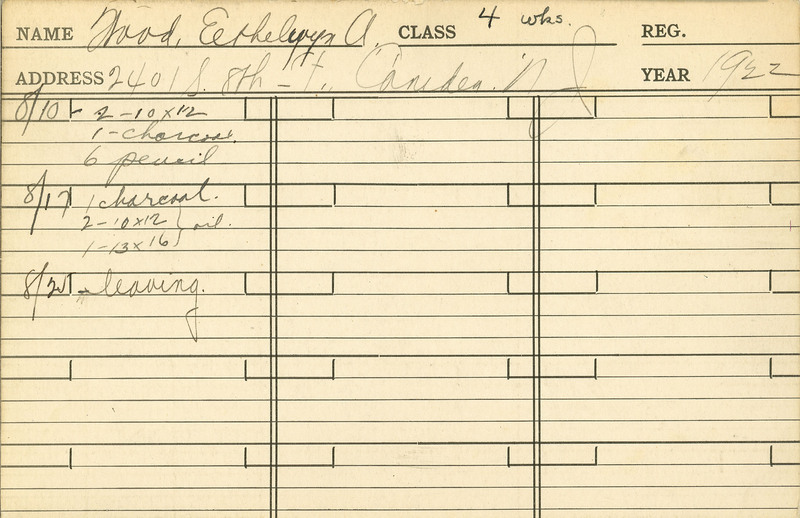 NAME Wood, Eethelwyn A. CLASS 4 wks. REG.
ADDRESS 2401 S. 8th - St., Camden. N J YEAR 1922
8/10 - 2 - 10 x 12
1 - charcoal.
6 pencil
8/17 1 charcoal.
2 - 10 x 12 } oil.
1 - 13 x 16 }
8/25 - leaving.